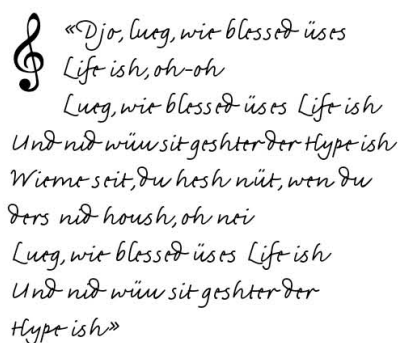 «Djo, lueg, wie blessed üses
Life ish, oh-oh
Lueg, wie blessed üses Life ish
Und nid wüu sit geshter der Hype ish
Wieme seit, du hesh nüt, wen du
ders nid housh, oh nei
Lueg, wie blessed üses Life ish
Und nid wüu sit geshter der
Hype ish»